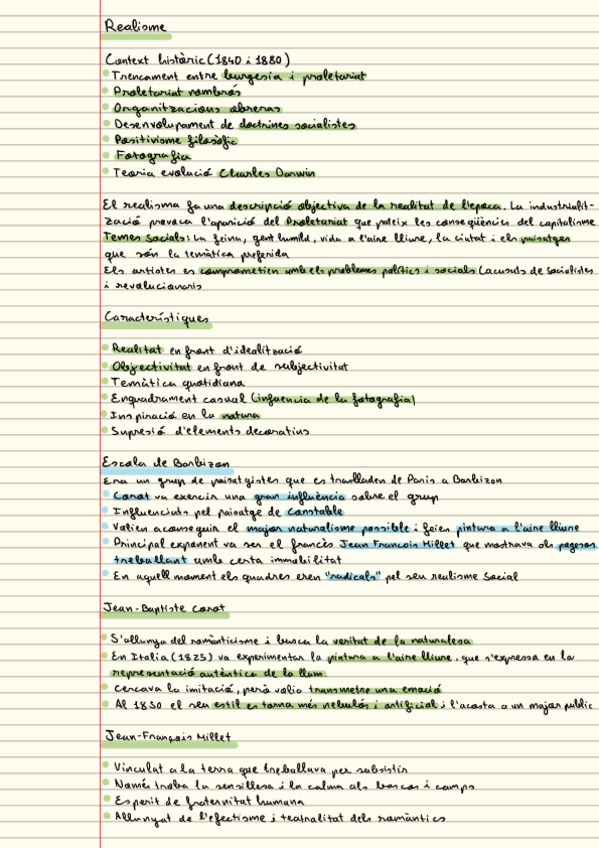 Realisme
Context històric (1840 i 1880)
Trencament entre burgesia i proletariat
Proletariat nombrós
Organitzacions obreres
Desenvolupament de doctrines socialistes
Positivisme filosòfic
Fotografia
Teoria evolució Charles Darwin
El realisme fa una descripció objectiva de la realitat de l'època. La industrialit-
zació provoca l'aparició del Proletariat que pateix les conseqüències del capitalisme
Temes Socials: La feina, gent humild, vida a l'aire lliure, la ciutat i els paisatges
que són la temàtica preferida
Els artistes es comprometien amb els problemes polítics i socials (acusats de socialistes
i revolucionaris
Característiques
Realitat en front d'idealització
Objectivitat en front de subjectivitat
Temàtica quotidiana
Enquadrament casual (influencia de la fotografia)
Inspiració en la natura
Supresió d'elements decoratius
Escola de Barbizon
Era un grup de paisatgistes que es traslladen de Paris a Barbizon
Corot va exercir una gran influència sobre el grup
Influenciats pel paisatge de Constable
Valien aconseguir el major naturalisme possible i feien pintura a l'aire lliure
Principal exponent va ser el francès Jean François Millet que mostrava als pagesos
treballant amb certa immobilitat
En aquell moment els quadres eren "radicals" pel seu realisme social
Jean-Baptiste Corot
S'allunya del romànticisme i busca la veritat de la naturalesa
En Italia (1825) va experimentar la pintura a l'aire lliure, que s'expressa en la
representació autèntica de la llum.
Cercava la imitació, però volia transmetre una emoció
Al 1850 el seu estil es torna més nebulós i artificial i l'acosta a un major públic
Jean-François Millet
Vinculat a la terra que treballava per subsistir
Només troba la senzillesa i la calma als boscos i camps
Esperit de fraternitat humana
Allunyat de l'efectisme i teatralitat dels romàntics